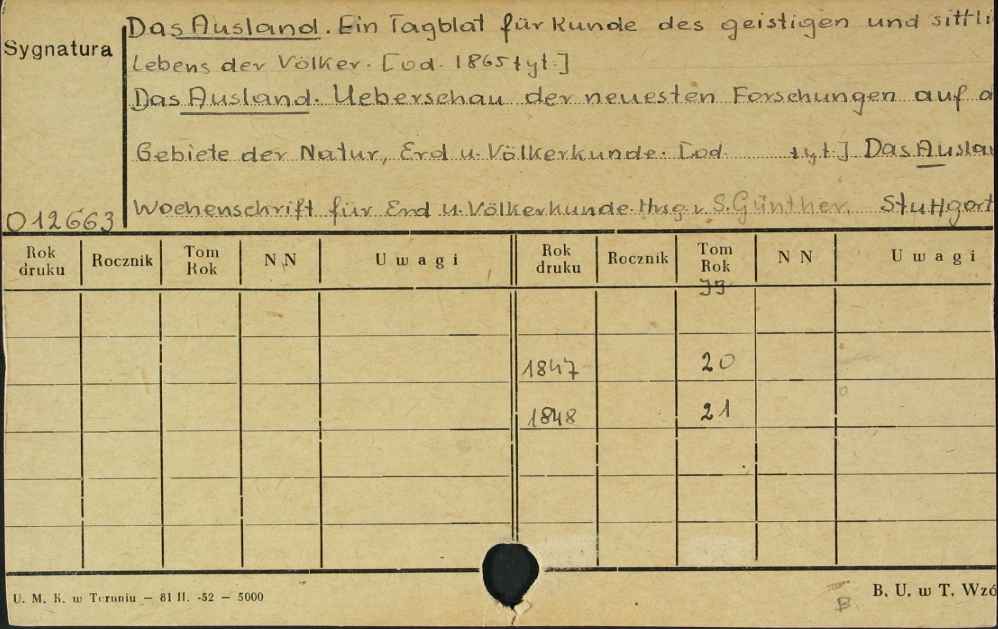 Das Ausland. Ein Tagblat für Kunde des geistigen und sittli
Sygnatura
Lebens der Völker. [od. 1865 tyt.]
Das Ausland. Ueberschau der neuesten Forschungen auf d
Gebiete der Natur, Erd u. Völkerkunde. [od. tyt.] Das Auslan
Wochenschrift für Erd u. Völkerkunde. Hrsg. v. S. Günther. Stuttgart
012663
Rok druku Rocznik Tom Rok N N Uwagi Rok druku Rocznik Tom Rok N N Uwagi
1847 20
1848 21
U. M. K. w Toruniu — 81 II. -52 — 5000
B. U. w T. Wzó
B